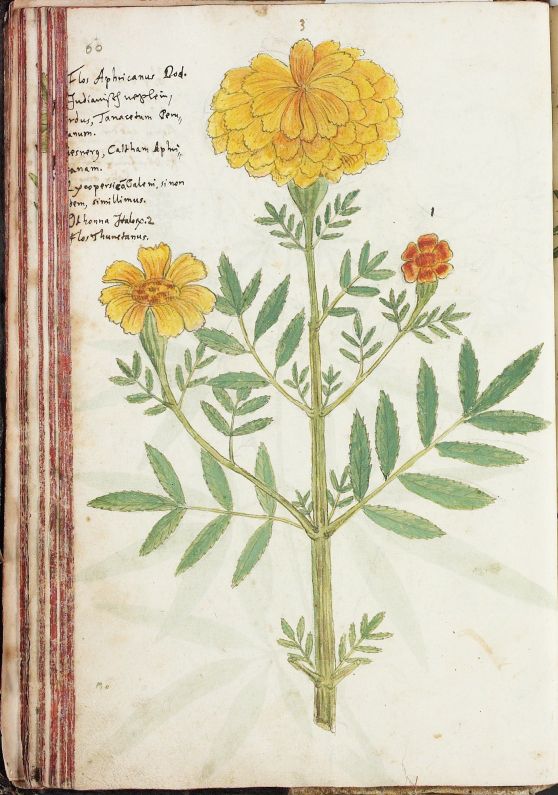 3
60
Flos Aphricanus Dod.
Indianisch neglein,
rdus, Tanacetum Peru,,
anum.
esnero, Caltham Aphri,,
anam.
Lycopersicō Galeni, si non
dem, simillimus.
Othonna Italor. 2
Flos Thunetanus.
1